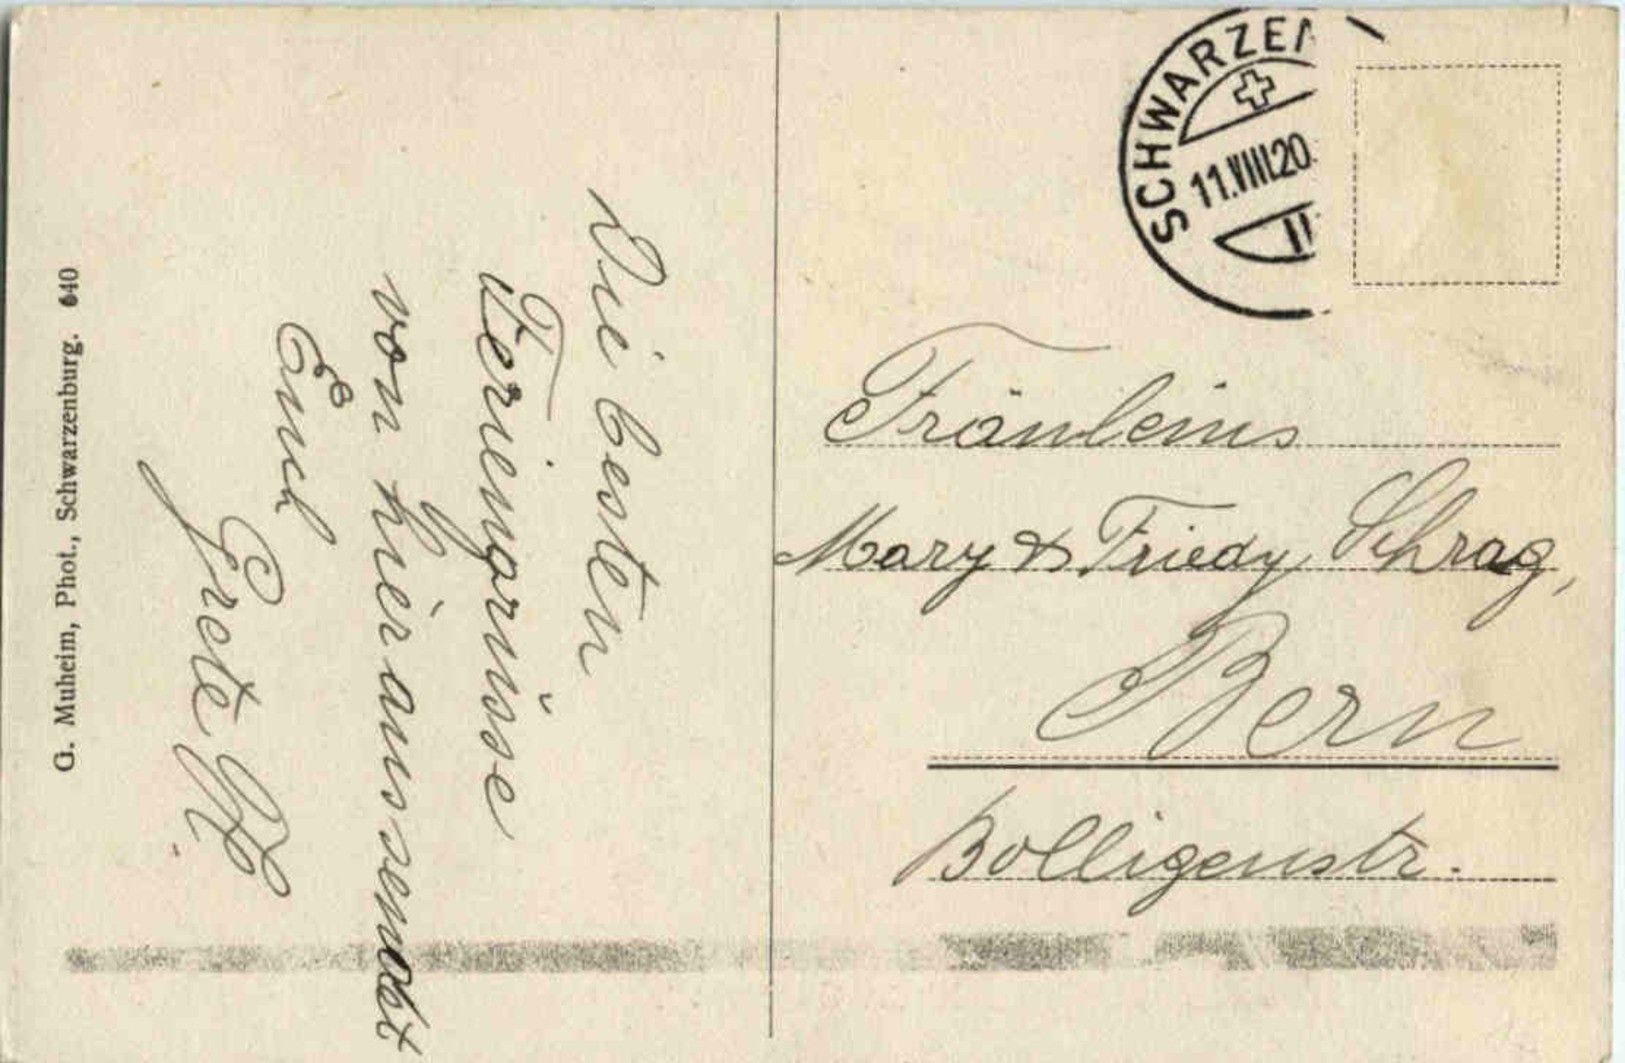 G. Muheim, Phot., Schwarzenburg. 640
Die besten
Feriengrüsse
von hier aus sendet
Euch
Grete
SCHWARZEN
11.VIII.20.
Fräuleins
Mary & Friedy Schrag,
Bern
Bolligenstr.